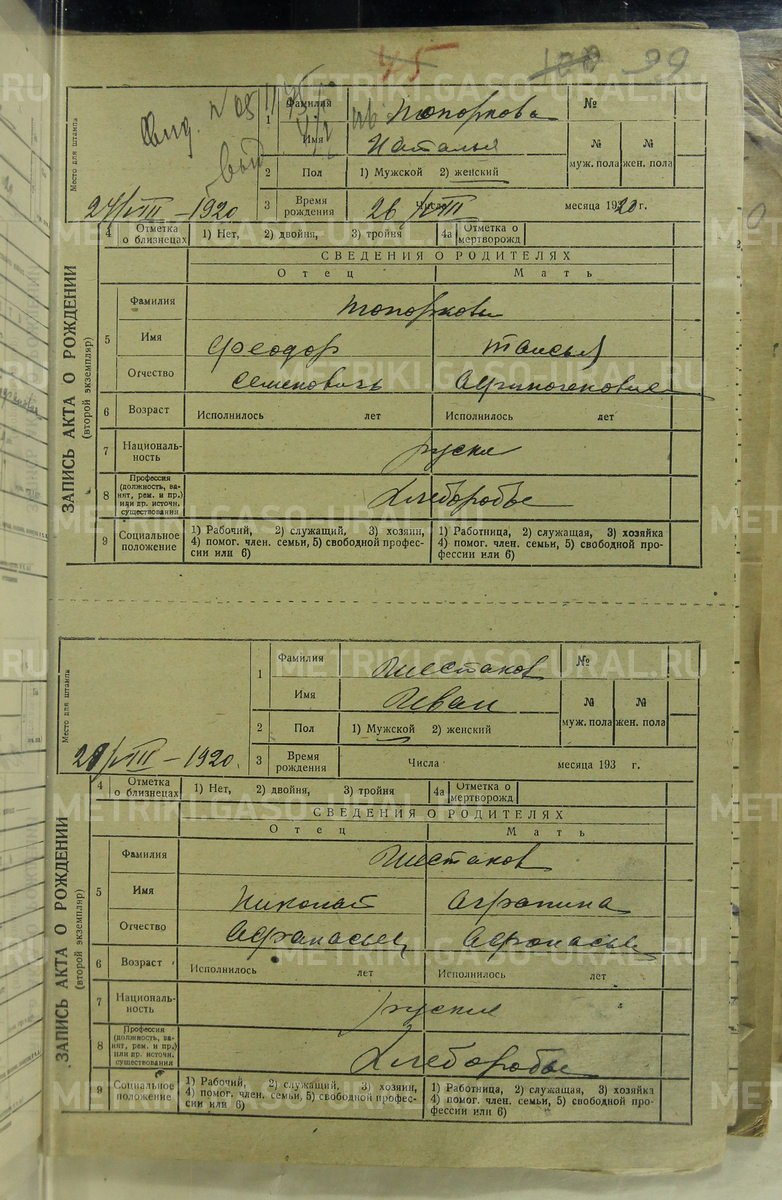 45 100 99
METRIKI.GASO-URAL.RU
Место для штампа
Свид. №
1 Фамилия Топоркова №
Имя Наталья
2 Пол 1) Мужской 2) женский
№ муж. пола № жен. пола
24/VIII – 1920
3 Время рождения 26/VIII Числа месяца 1920 г.
4 Отметка о близнецах 1) Нет, 2) двойня, 3) тройня 4а Отметка о мертворожд
ЗАПИСЬ АКТА О РОЖДЕНИИ
(второй экземпляр)
СВЕДЕНИЯ О РОДИТЕЛЯХ
Отец Мать
5 Фамилия Топорковы
Имя Феодор Таисья
Отчество Семеновичь
6 Возраст Исполнилось лет Исполнилось лет
7 Националь-
ность руские
8 Профессия
(должность, за-
нят, рем. и пр.)
или др. источн.
существования
Хлеборобье
9 Социальное
положение
1) Рабочий, 2) служащий, 3) хозяин,
4) помог. член. семьи, 5) свободной профес-
сии или 6)
1) Работница, 2) служащая, 3) хозяйка
4) помог. член. семьи, 5) свободной про-
фессии или 6)
Место для штампа
1 Фамилия Шестаков №
Имя Иван
2 Пол 1) Мужской 2) женский
№ муж. пола № жен. пола
/VIII – 1920.
3 Время рождения Числа месяца 193 г.
4 Отметка о близнецах 1) Нет, 2) двойня, 3) тройня 4а Отметка о мертворожд
ЗАПИСЬ АКТА О РОЖДЕНИИ
(второй экземпляр)
СВЕДЕНИЯ О РОДИТЕЛЯХ
Отец Мать
5 Фамилия Шестаков
Имя Николай Аграпина
Отчество Афанасьев
6 Возраст Исполнилось лет Исполнилось лет
7 Националь-
ность руские
8 Профессия
(должность, за-
нят, рем. и пр.)
или др. источн.
существования
Хлеборобье
9 Социальное
положение
1) Рабочий, 2) служащий, 3) хозяин,
4) помог. член. семьи, 5) свободной профес-
сии или 6)
1) Работница, 2) служащая, 3) хозяйка
4) помог. член. семьи, 5) свободной про-
фессии или 6)